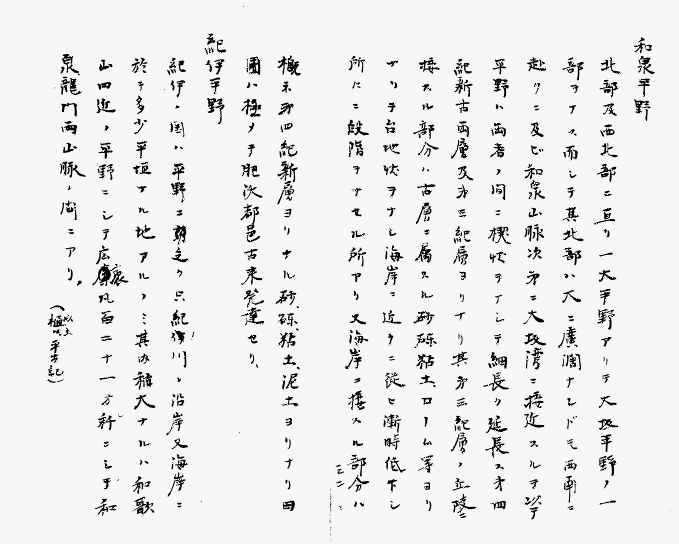 和泉平野
北部及西北部ニ亘リ一大平野アリテ大坂平野ノ一
部ヲナス而シテ其北部ハ大ニ廣濶ナレドモ西南ニ
赴クニ及ビ和泉山脉次第ニ大坂湾ニ接近スルヲ以テ
平野ハ両者ノ間ニ楔状ヲナシテ細長ク延長ス第四
紀新古両層及第三紀層ヨリナリ其第三紀層ノ丘陵ニ
接スル部分ハ古層ニ属スル砂礫粘土ローム等ヨリ
ナリテ台地状ヲナシ海岸ニ近クニ従ヒ漸時低下シ
所ニ段階ヲナセル所アリ又海岸ニ接スル部分ハ
概ネ第四紀新層ヨリナル砂、礫、粘土、泥土ヨリナリ田
圃ハ極メテ肥沃都邑古来発達セリ、
紀伊平野
紀伊ノ国ハ平野ニ乏ク只紀伊川ノ沿岸又海岸ニ
於テ多少平垣ナル地アルノミ其内稍大ナルハ和歌
山四近ノ平野ニシテ広袤凡百二十一方粁ニシテ和
泉龍門両山脉ノ間ニアリ、
(以上 平古記)
三二